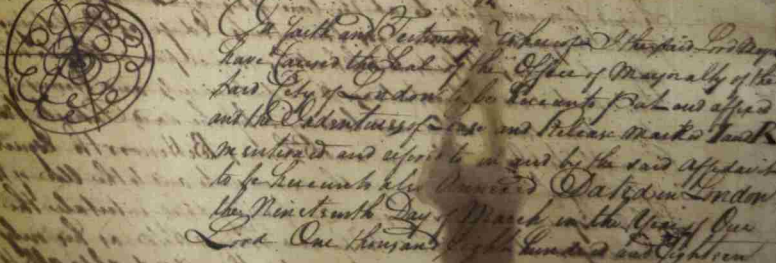 In Faith and Testimony whereof I the said Lord Mayor
have caused the Seal of the Office of Mayoralty of the
said City of London to be hereunto put and affixed
and the Indentures of Lease and Release marked I and K
mentioned and referred to in and by the said Affidavit
to be hereunto also annexed Dated in London
the Nineteenth Day of March in the Year of Our
Lord One thousand Eight hundred and Eighteen